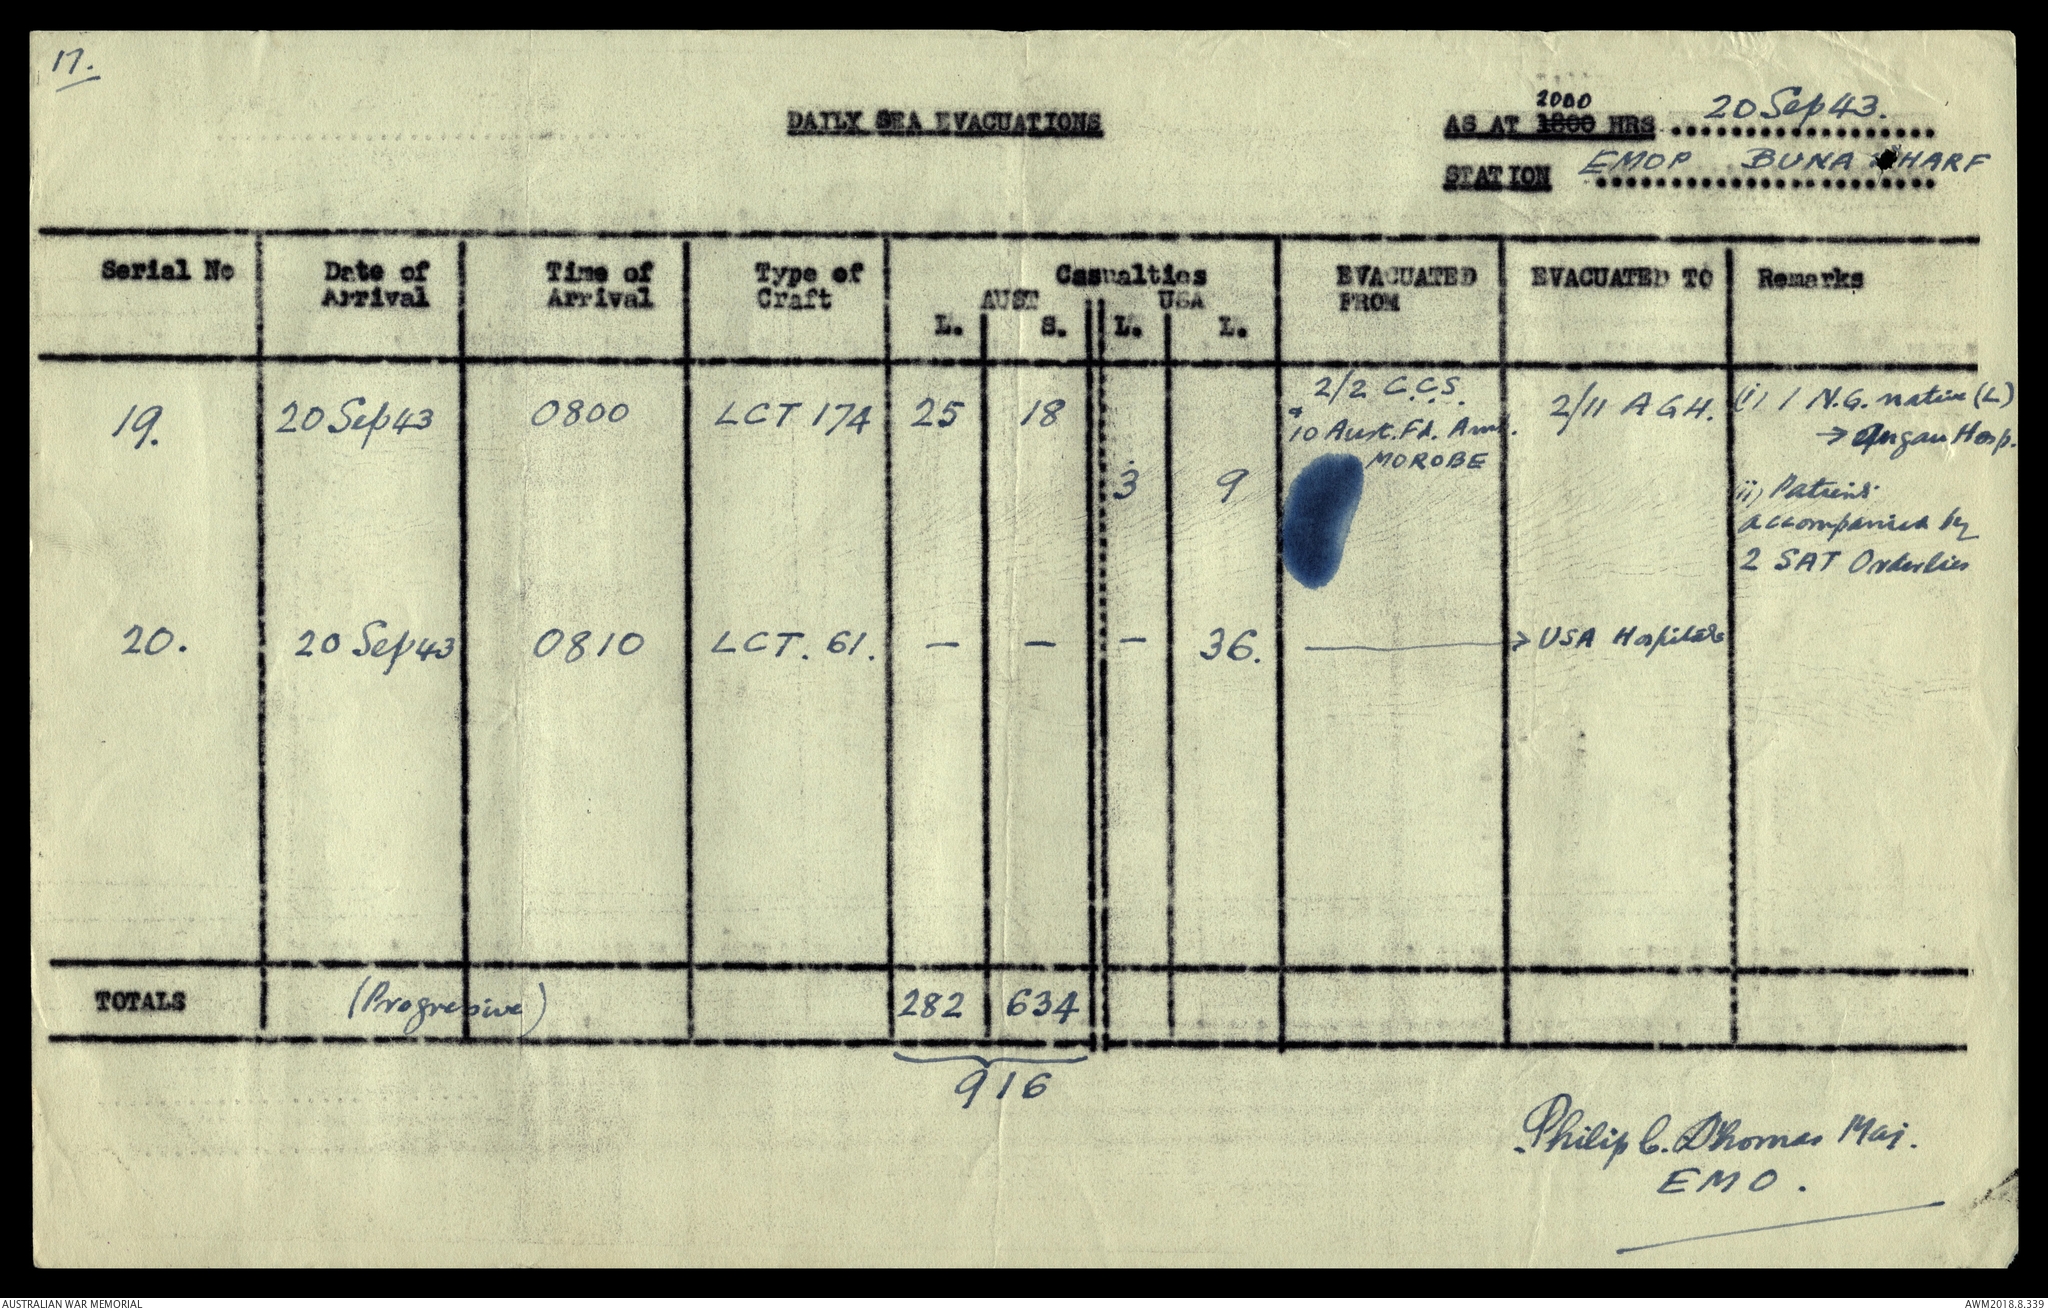 17.
DAILY SEA EVACUATIONS
2000
AS AT 1800 HRS 20 Sep 43.
STATION EMOP BUNA WHARF
Serial No Date of Arrival Time of Arrival Type of Craft Casualties EVACUATED FROM EVACUATED TO Remarks
AUST USA
L. S. L. L.
19. 20 Sep 43 0800 LCT 174 25 18 2/2 C.C.S. 2/11 AGH. (i) 1 N.G. native (L)
10 Aust. Fd. Amb. → Hosp.
MOROBE
3 9 ii) Patients
accompanied by
2 SAT Orderlies
20. 20 Sep 43 0810 LCT. 61. — — — 36. → USA Hospitals
TOTALS (Progressive) 282 634
916
Philip C. Thomas Maj.
EMO.
AUSTRALIAN WAR MEMORIAL AWM2018.8.339